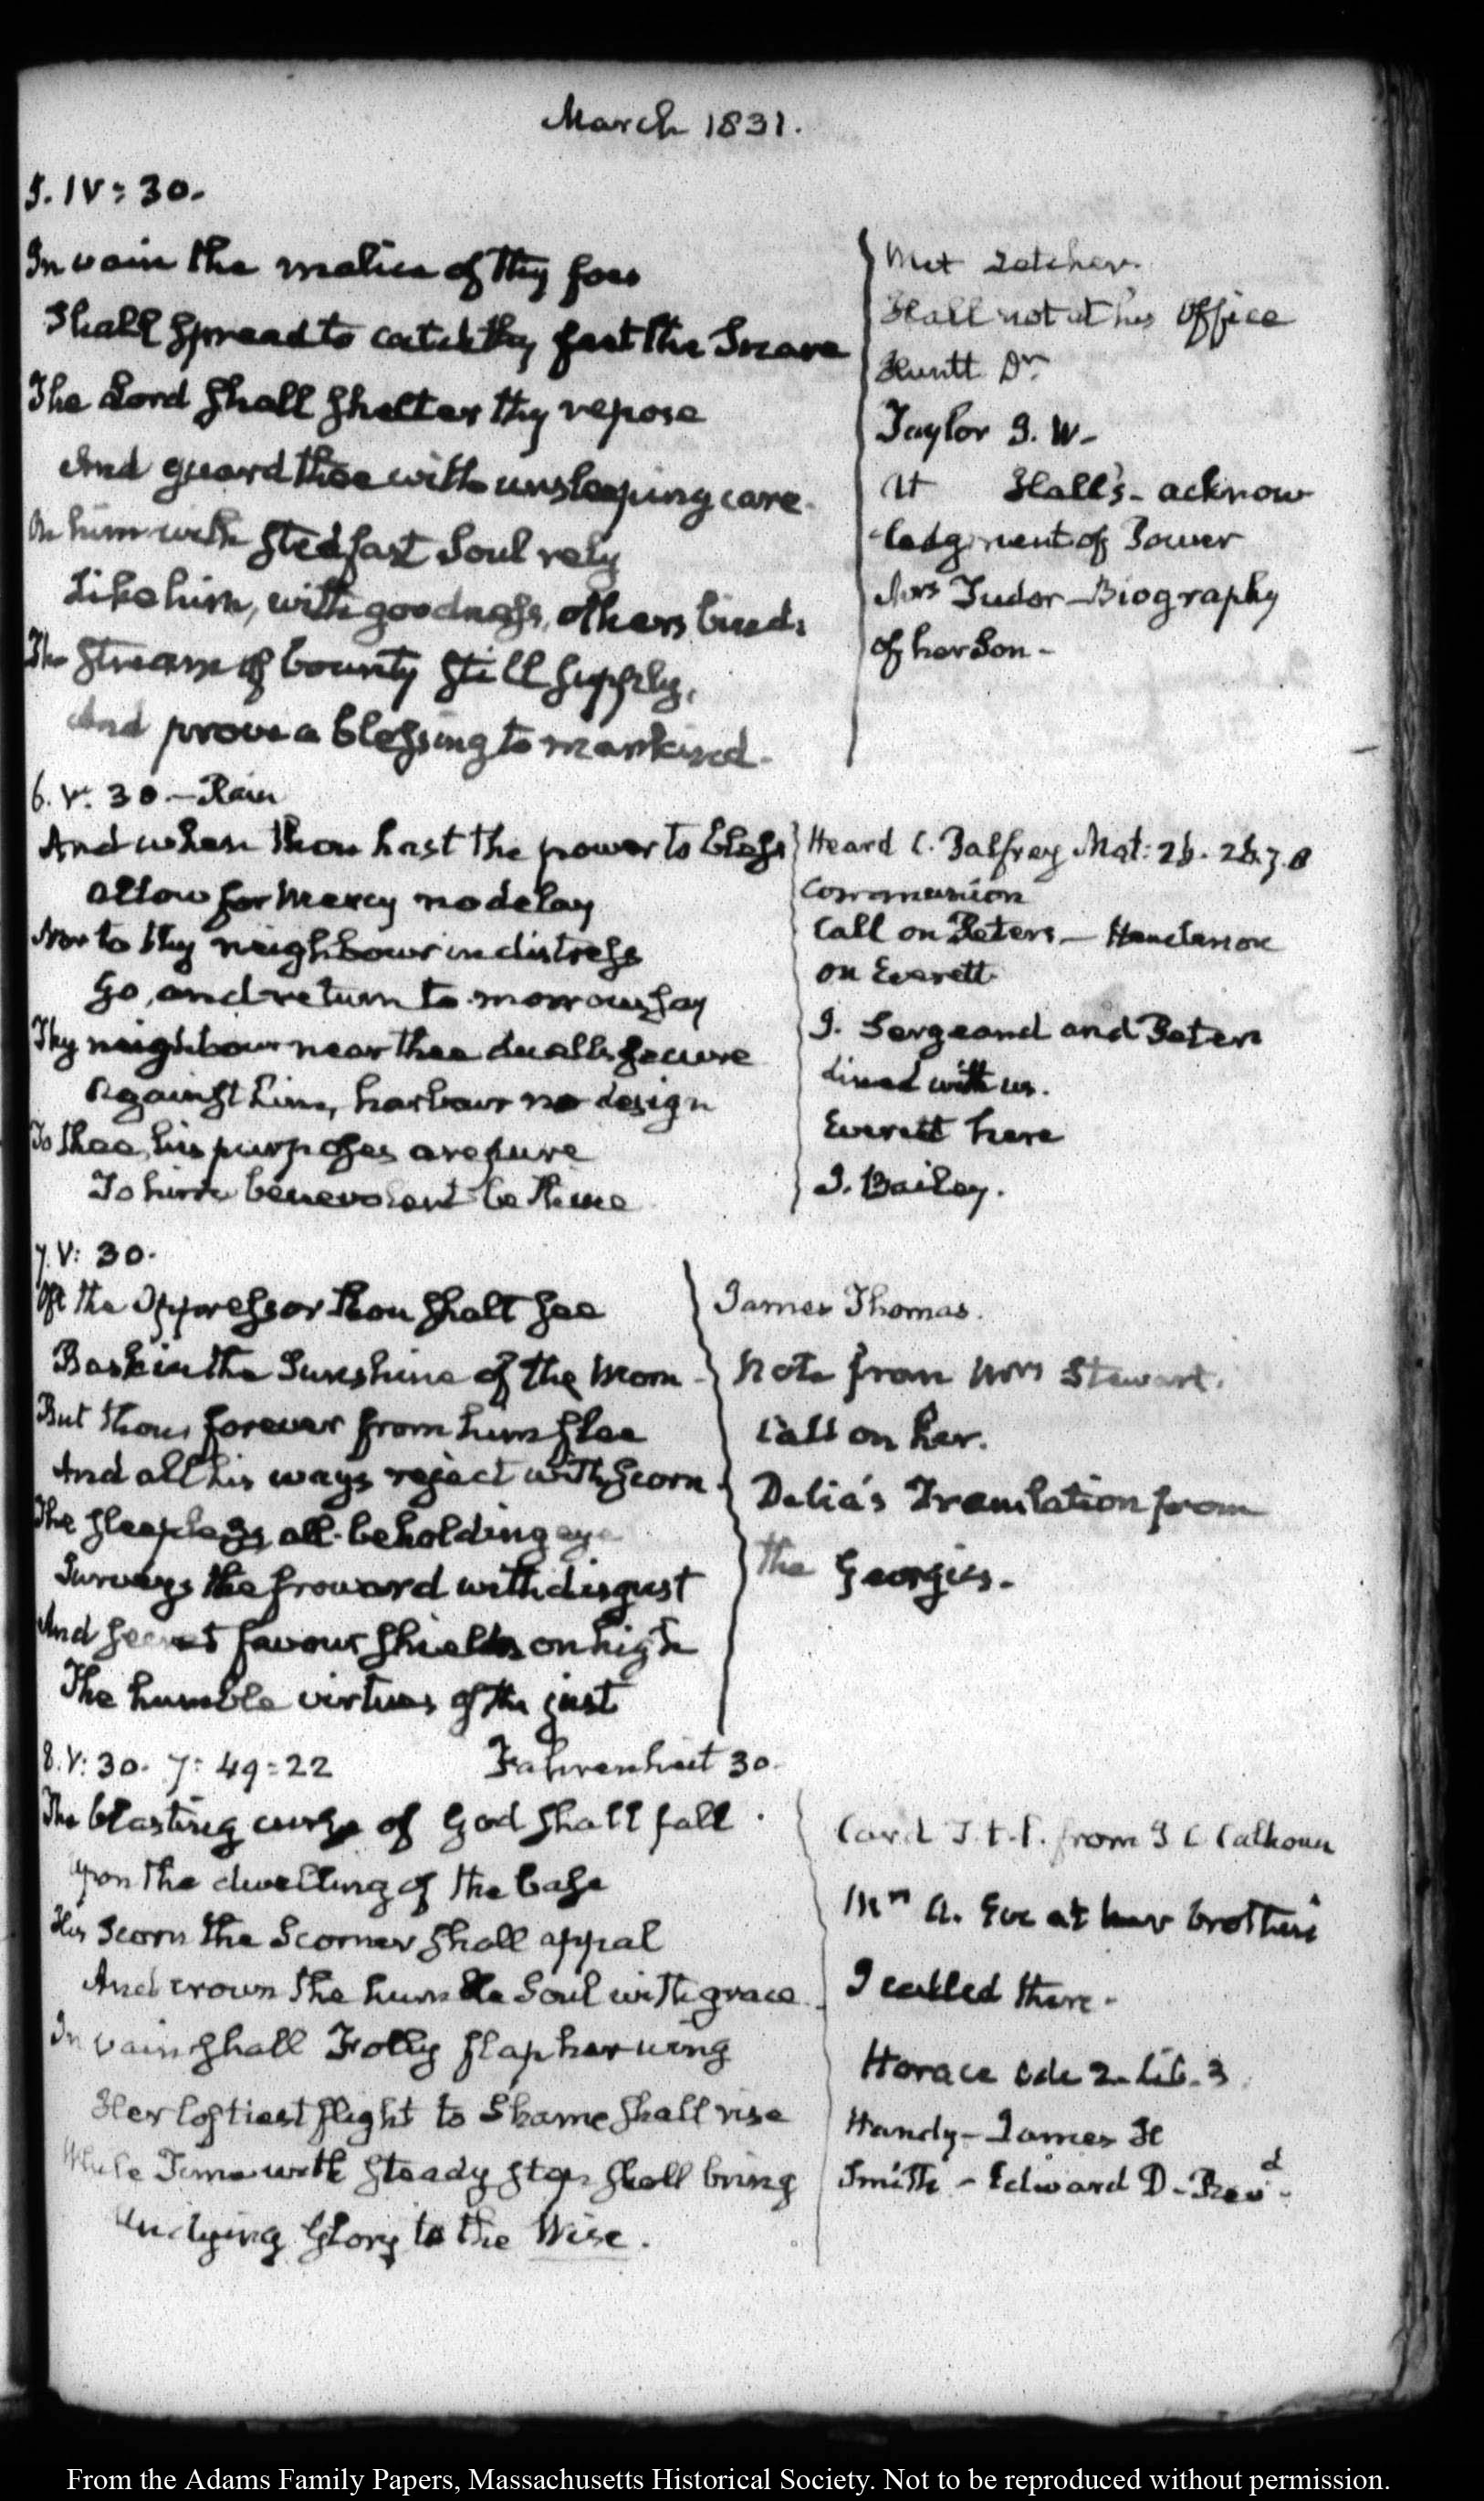 March 1831.
5. IV: 30.
In vain the malice of thy foes
Shall spread to catch thy feet the Snare
The Lord shall shelter thy repose
And guard thee with unsleeping care.
On him with stedfast Soul rely
Like him, with goodness, others bind.
The stream of bounty still supply,
And prove a blessing to mankind.
Met Letcher.
Hall not at his Office
Huntt Dr.
Taylor J. W.
At Hall's - acknow
ledgment of Power
Mrs Tudor - Biography
of her Son -
6. V. 30. - Rain
And when thou hast the power to bless
allow for Mercy no delay
Nor to thy neighbour in distress
Go, and return to-morrow say
Thy neighbour near thee dwells secure
Against him, harbour no design
To thee, his purposes are pure
To him benevolent be thine
Heard C. Palfrey Mat: 26. 26.7.8
Communion
Call on Peters -
on Everett
J. Sergeant and Peters
dined with us.
Everett here
J. Bailey.
7. V: 30.
Oft the Oppressor thou shalt see
Bask in the Sunshine of the Morn -
But thou forever from him flee
And all his ways reject with scorn.
The sleepless, all-beholding eye
Surveys the froward with disgust
And secret favour shields on high
The humble virtues of the just
James Thomas.
Note from Mrs Stewart.
Call on her.
Delia's Translation from
the Georgics.
8. V: 30. 7: 49=22 Fahrenheit 30.
The blasting curse of God shall fall.
Upon the dwelling of the base
His Scorn the Scorner shall appal
And crown the humble Soul with grace.
In vain shall Folly flap her wing
Her loftiest flight to Shame shall rise
While Time with steady step shall bring
Undying Glory to the Wise.
Card from J C Calhoun
Mrs A. Eve at her brother's
I called there.
Horace Ode 2. Lib. 3.
Handy - James H
Smith - Edward D. Revd.
From the Adams Family Papers, Massachusetts Historical Society. Not to be reproduced without permission.